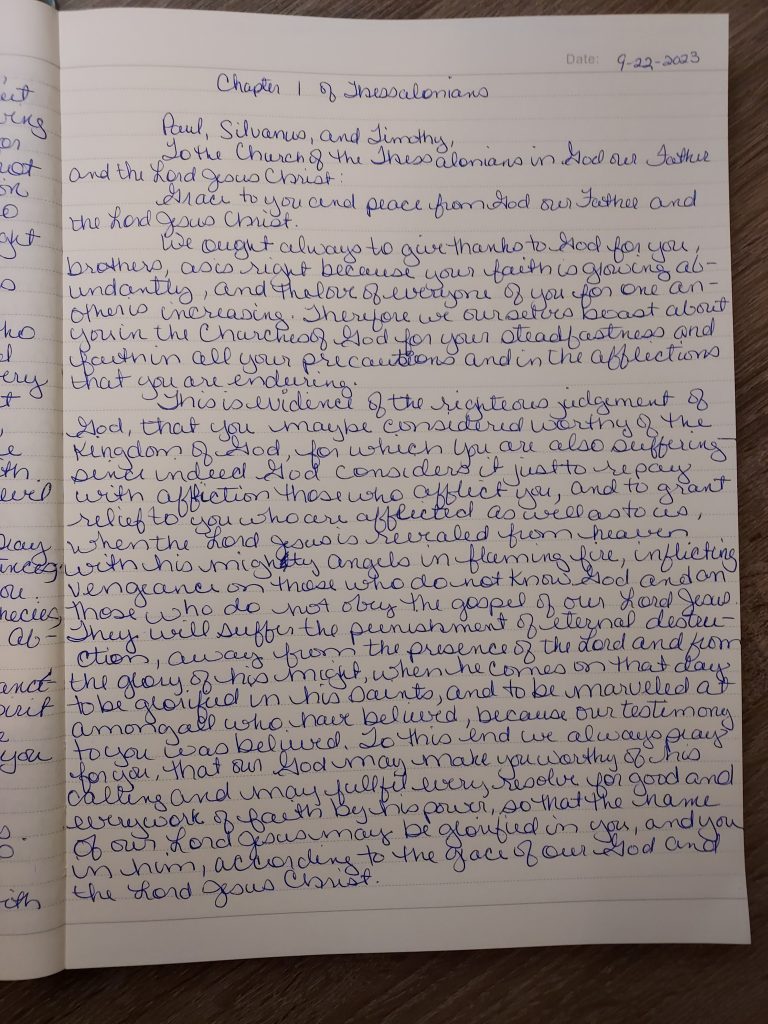 Date: 9-22-2023
Chapter 1 of Thessalonians
Paul, Silvanus, and Timothy,
To the Church of the Thessalonians in God our Father
and the Lord Jesus Christ:
Grace to you and peace from God our Father and
the Lord Jesus Christ.
We ought always to give thanks to God for you,
brothers, as is right because your faith is growing ab-
undantly, and the love of everyone of you for one an-
other is increasing. Therefore we ourselves boast about
you in the Churches of God for your steadfastness and
faith in all your precautions and in the afflictions
that you are enduring.
This is evidence of the righteous judgement of
God, that you maybe considered worthy of the
Kingdom of God, for which you are also suffering
since indeed God considers it just to repay
with affliction those who afflict you, and to grant
relief to you who are afflicted as well as to us,
when the Lord Jesus is revealed from heaven
with his mighty angels in flaming fire, inflicting
vengeance on those who do not know God and on
those who do not obey the gospel of our Lord Jesus.
They will suffer the punishment of eternal destru-
ction, away from the presence of the Lord and from
the glory of his might, when he comes on that day
to be glorified in his Saints, and to be marveled at
among all who have belived, because our testimony
to you was belived. To this end we always pray
for you, that our God may make you worthy of his
calling and may fullfil every resolve for good and
every work of faith by his power, so that the name
of our Lord Jesus may be glorified in you, and you
in him, according to the grace of our God and
the Lord Jesus Christ.